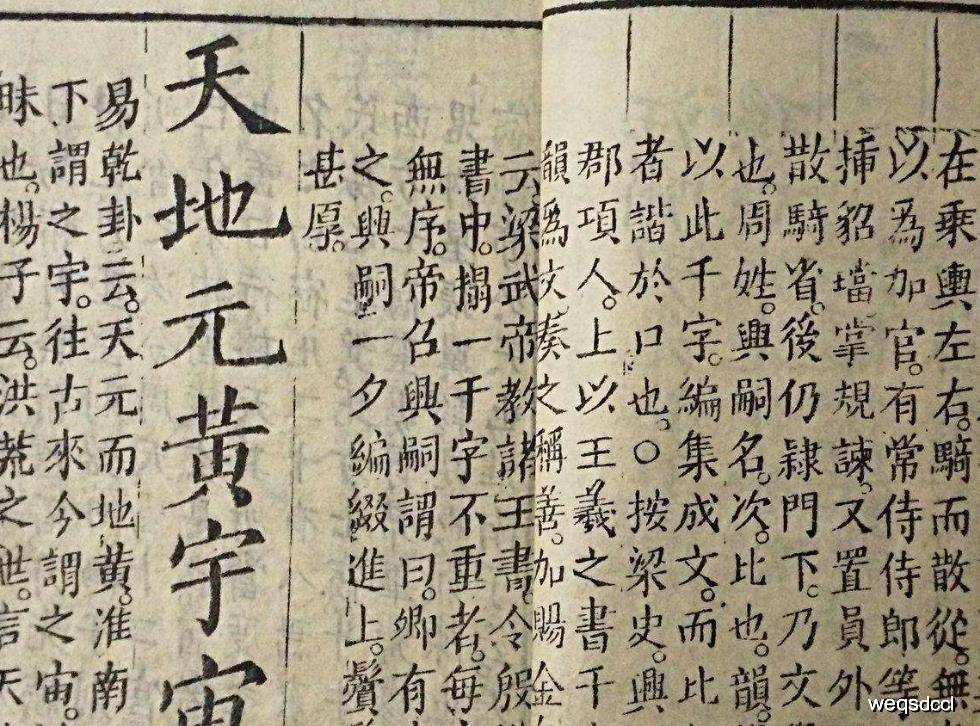 在乗輿左右。騎而散從。無
以為加官。有常侍侍郎等
挿貂璫掌規諫。又置員外
散騎省。後仍隷門下。乃文
也。周姓。興嗣名。次。比也。韻。
以此千字。編集成文。而比
者諧於口也。○按梁史。興
郡項人。上以王羲之書千
韻為文奏之稱善。加賜金
云梁武帝教諸王書。令殷
書中。搨一千字不重者。每
無序。帝召興嗣謂曰。卿有
之。興嗣一夕編綴進上。鬢
甚厚。
天地元黃宇宙
易乾卦云。天元而地黃。淮南
下謂之宇。往古來今謂之宙。
昧也。楊子云。洪荒之世。言天
weqsdccl